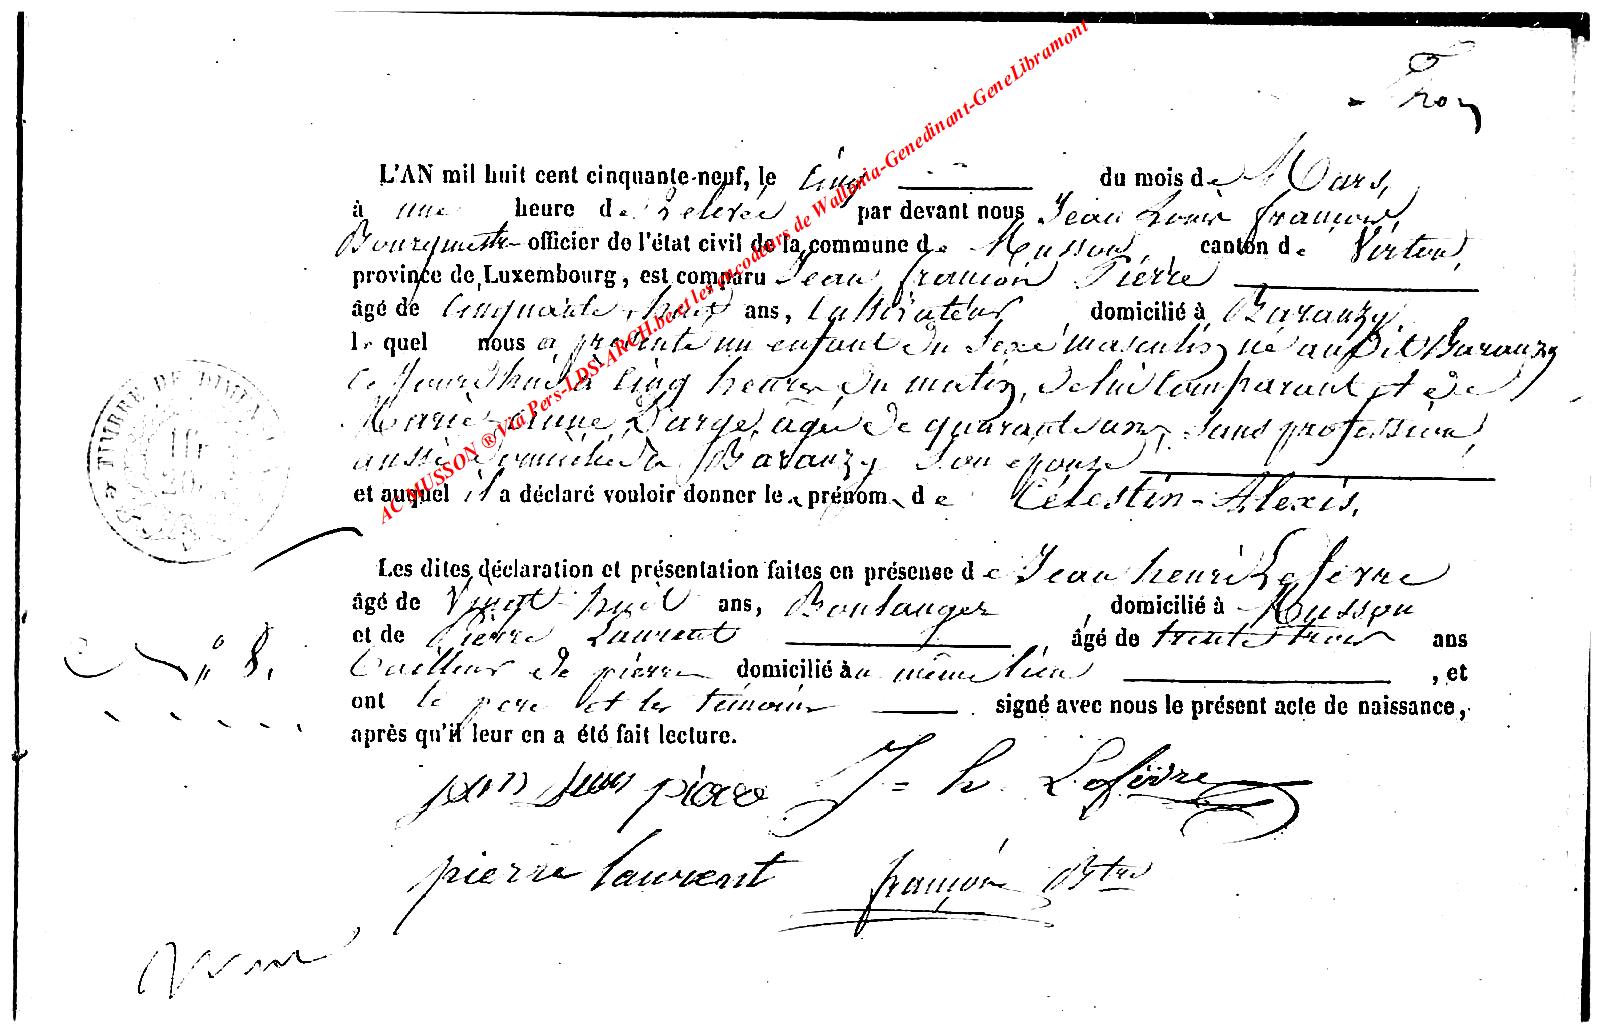 Troy
L'AN mil huit cent cinquante-neuf, le cinq du mois de Mars,
à une heure de relevée par devant nous Jean Louis françois,
Bourgmestre officier de l'état civil de la commune de Musson, canton de Virton,
province de Luxembourg, est comparu Jean françois Pierre
âgé de cinquante huit ans, Cultivateur domicilié à Baranzy
le quel nous a présenté un enfant du sexe masculin, né au dit Baranzy
ce jourd'hui à cinq heures du matin, de lui comparant et de
Marie anne agée de quarante ans, sans profession,
aussi domiciliée à Baranzy son épouse
et auquel il a déclaré vouloir donner les prénoms de Célestin-Alexis.
Les dites déclaration et présentation faites en présense de Jean henri Lefèvre
âgé de Vingt huit ans, Boulanger, domicilié à Musson
et de Pierre Laurent âgé de trente trois ans
tailleur de pierre domicilié au même lieu, et
N° 8.
ont le père et les témoins signé avec nous le présent acte de naissance,
après qu'il leur en a été fait lecture.
J = h. Lefèvre
pierre laurent françois Bgtre
TIMBRE DE DIMENSION
1 fr
20
AC MUSSON ® Via Pers-LDS-ARCH.be et les encodeurs de Wallonia-Genedinant-GeneLibramont